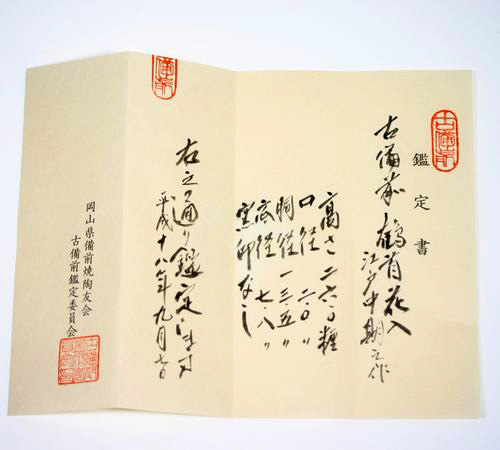 古備前
鑑定書
古備前 鶴首花入
江戸中期之作
高さ 二六・〇糎
口径 二・〇〃
胴径 一三・五〃
底径 七・八〃
窯印なし
右之通り鑑定します
平成十八年九月七日
岡山県備前焼陶友会
古備前鑑定委員会